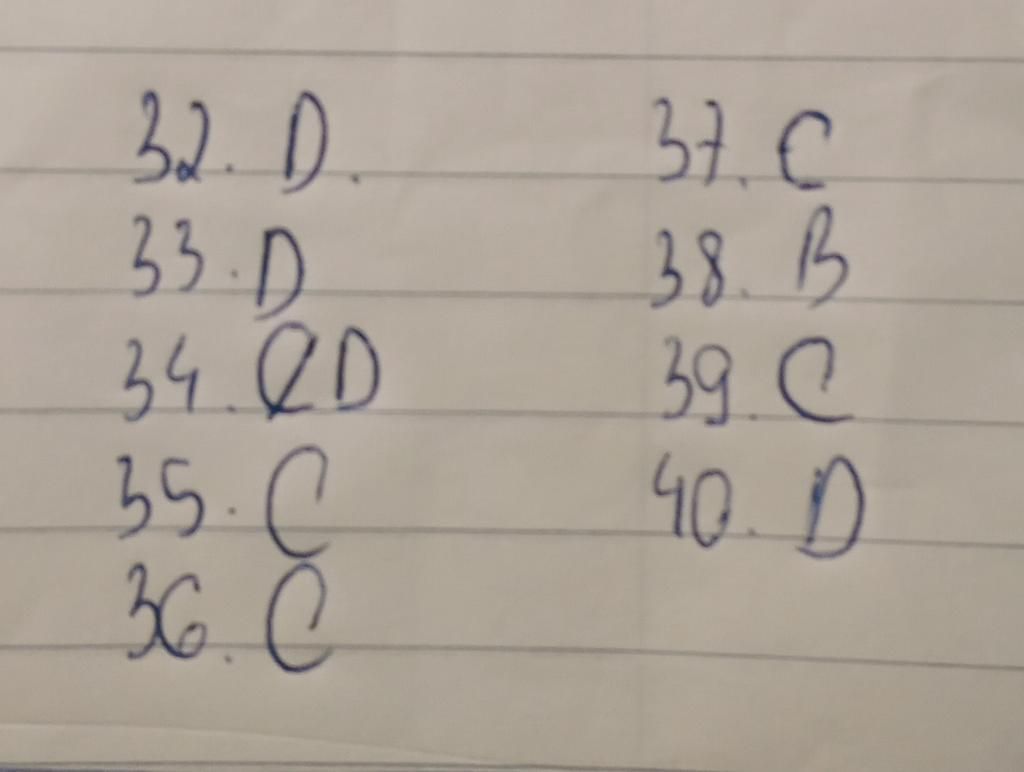 32. D.
33. D
34. D
35. C
36. C
37. C
38. B
39. C
40. D